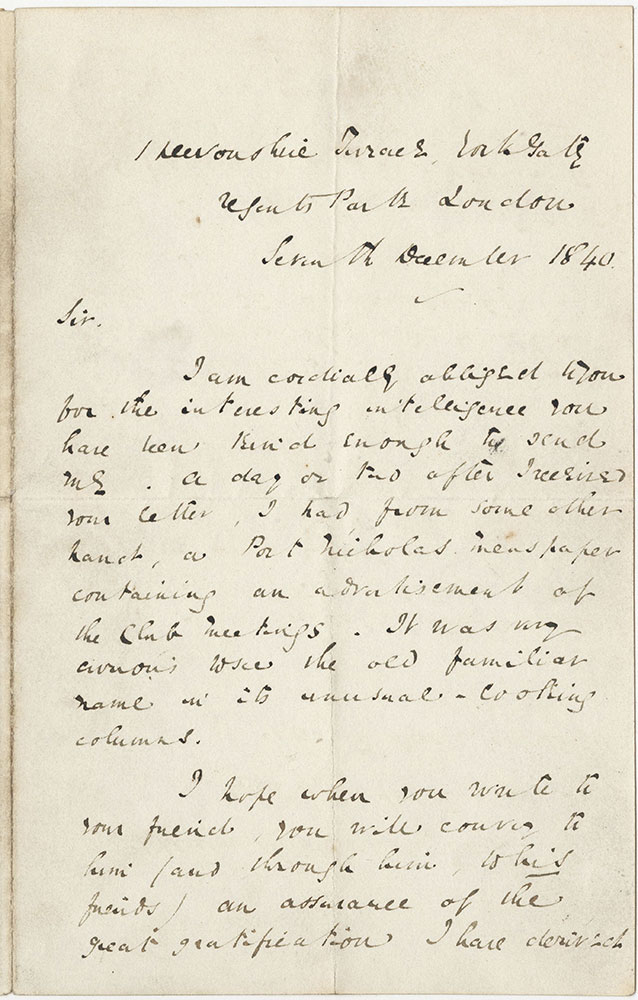 1 Devonshire Terrace, York Gate
Regents Park London
Seventh December 1840.
Sir.
I am cordially obliged to you
for the interesting intelligence you
have been kind enough to send
me. A day or two after I received
your letter, I had, from some other
hand, a Port Nicholas newspaper
containing an advertisement of
the Club Meetings. It was very
curious to see the old familiar
name in its unusual-looking
columns.
I hope when you write to
your friend, you will convey to
him (and through him, to his
friends) an assurance of the
great gratification I have derived